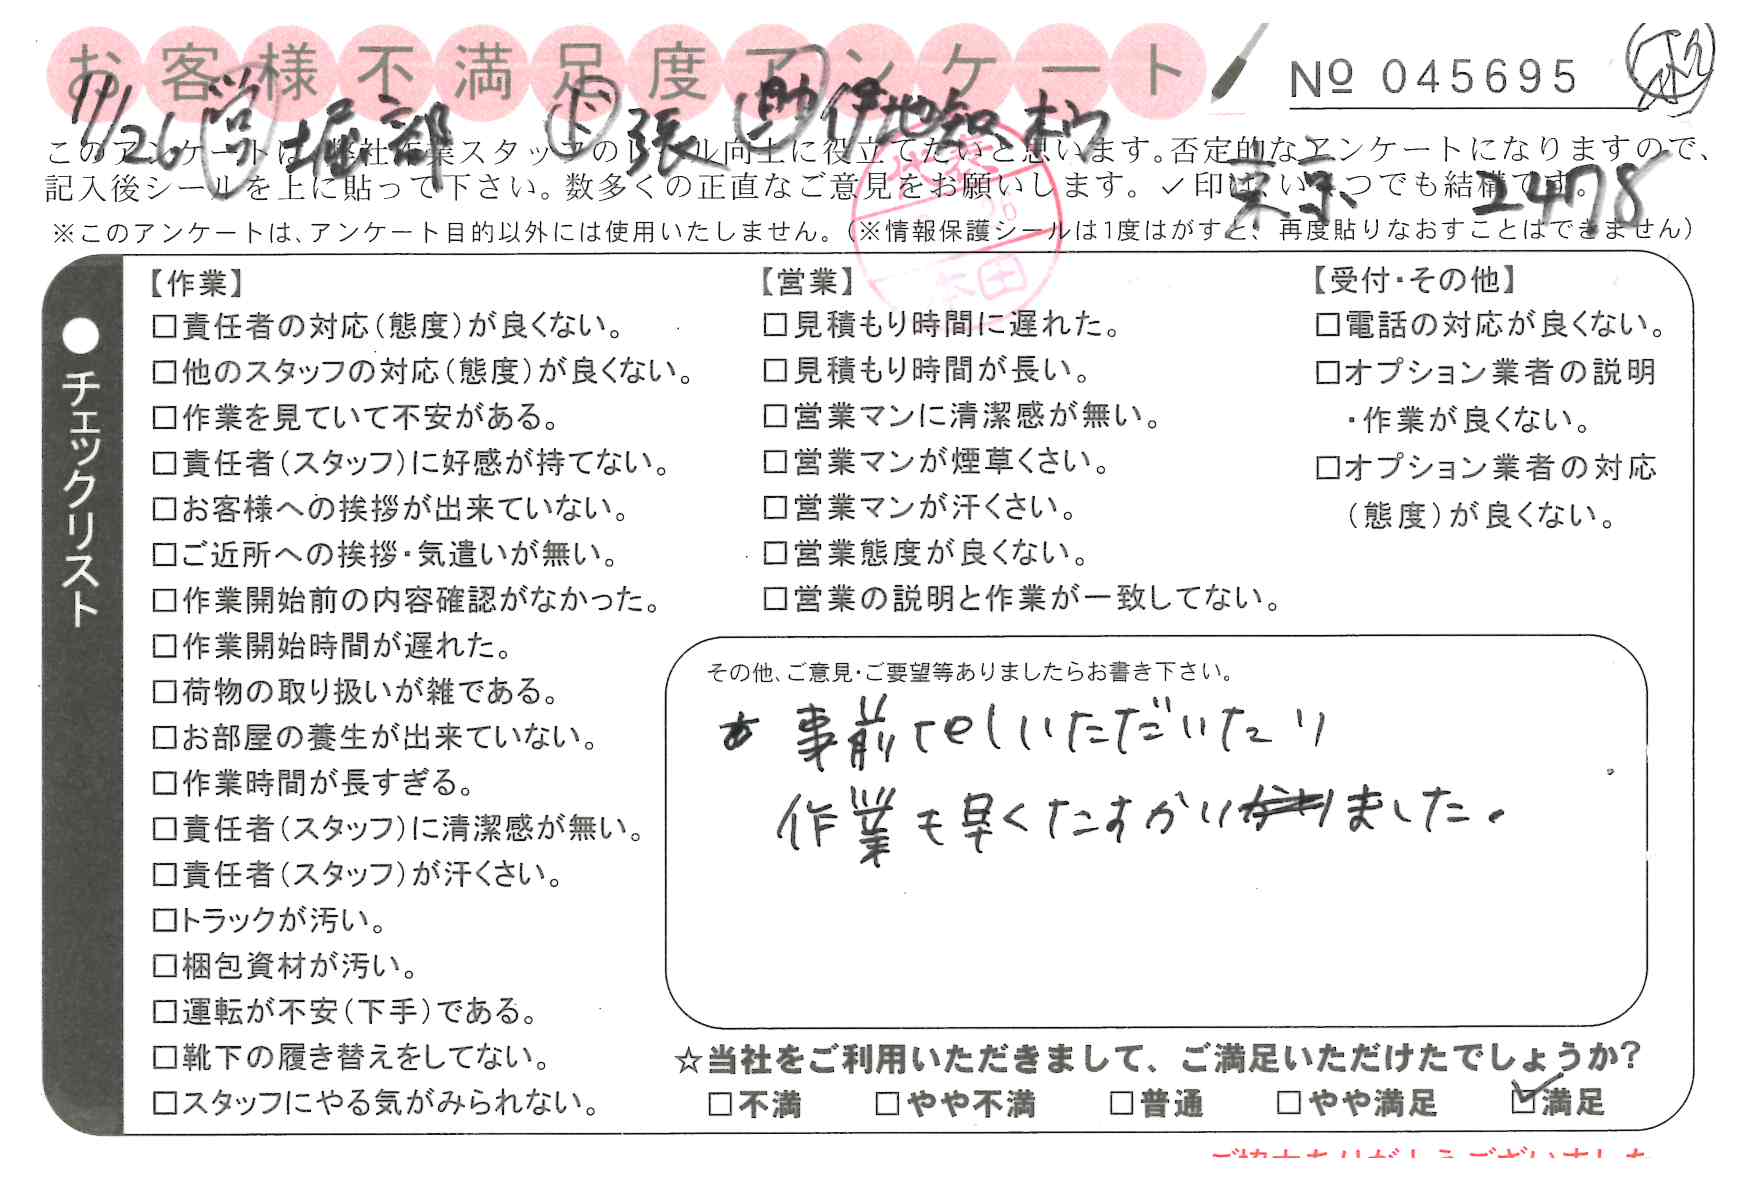 お客様不満足度アンケート
№ 045695
11/26 営 堀部 ド 張 助 伊地知 柄
このアンケートは、弊社作業スタッフのレベル向上に役立てたいと思います。否定的なアンケートになりますので、
記入後シールを上に貼って下さい。数多くの正直なご意見をお願いします。✓印は、いくつでも結構です。
東京 2478
※このアンケートは、アンケート目的以外には使用いたしません。(※情報保護シールは1度はがすと、再度貼りなおすことはできません)
本田
●チェックリスト
【作業】
□責任者の対応(態度)が良くない。
□他のスタッフの対応(態度)が良くない。
□作業を見ていて不安がある。
□責任者(スタッフ)に好感が持てない。
□お客様への挨拶が出来ていない。
□ご近所への挨拶・気遣いが無い。
□作業開始前の内容確認がなかった。
□作業開始時間が遅れた。
□荷物の取り扱いが雑である。
□お部屋の養生が出来ていない。
□作業時間が長すぎる。
□責任者(スタッフ)に清潔感が無い。
□責任者(スタッフ)が汗くさい。
□トラックが汚い。
□梱包資材が汚い。
□運転が不安(下手)である。
□靴下の履き替えをしてない。
□スタッフにやる気がみられない。
【営業】
□見積もり時間に遅れた。
□見積もり時間が長い。
□営業マンに清潔感が無い。
□営業マンが煙草くさい。
□営業マンが汗くさい。
□営業態度が良くない。
□営業の説明と作業が一致してない。
【受付・その他】
□電話の対応が良くない。
□オプション業者の説明
・作業が良くない。
□オプション業者の対応
(態度)が良くない。
その他、ご意見・ご要望等ありましたらお書き下さい。
事前にTELいただいたり
作業も早くたすかりました。
☆当社をご利用いただきまして、ご満足いただけたでしょうか?
□不満 □やや不満 □普通 □やや満足 ☑満足
ご協力ありがとうございました